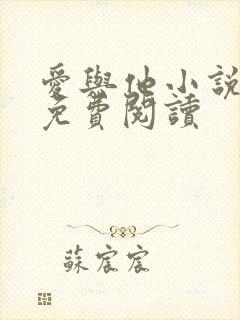 愛與他小說
免費閱讀
蘇宸宸